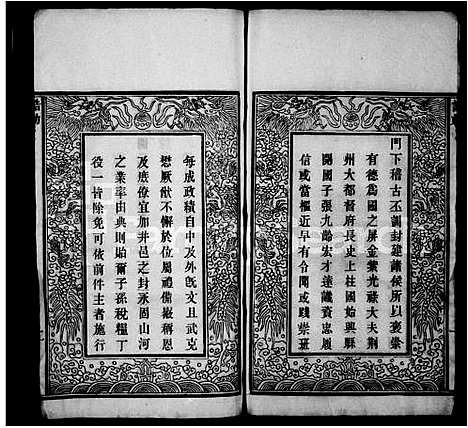 門下稽古丕訓封建諸侯所以褒崇
有德為國之屏金紫光祿大夫荆
州大都督府長史上柱國始興縣
開國子張九齡宏才達識資忠履
信或當樞近早有令聞或踐崇班
每成政績自中及外旣文且武克
懋厥猷不懈於位屬禮備嚴稱恩
及庶僚宜加井邑之封永固山河
之業率由典則始爾子孫稅糧丁
役一皆除免可依前件主者施行